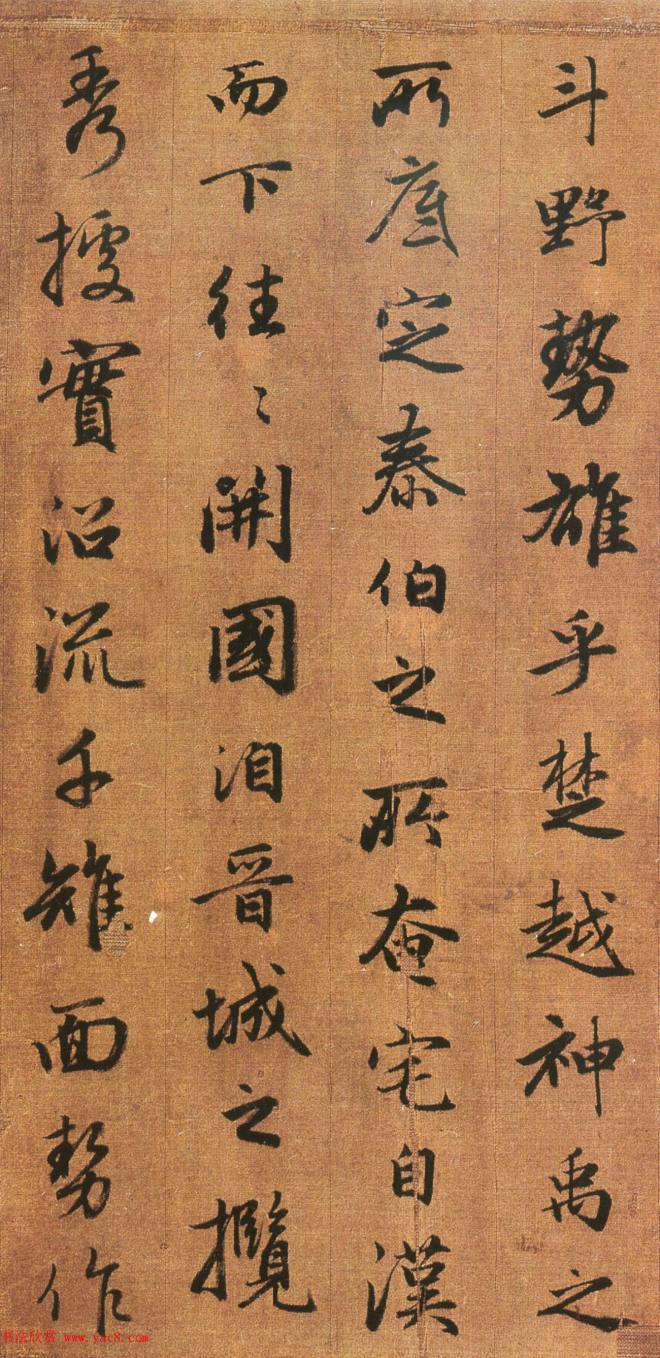 斗野勢雄乎楚越神禹之
所底定泰伯之所奄宅自漢
而下往〻開國洎晉城之攬
秀摭實沿流千雉面勢作
书法欣赏 www.yac8.com